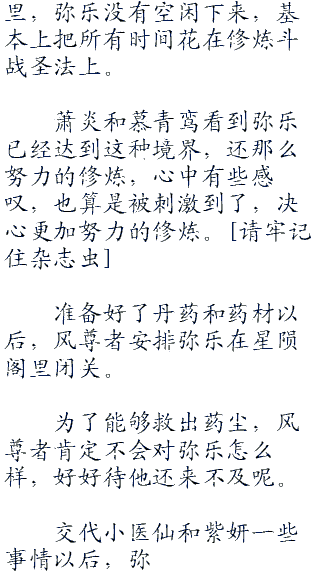 里，弥乐没有空闲下来，基
本上把所有时间花在修炼斗
战圣法上。
萧炎和慕青鸾看到弥乐
已经达到这种境界，还那么
努力的修炼，心中有些感
叹，也算是被刺激到了，决
心更加努力的修炼。[请牢记
住杂志虫]
准备好了丹药和药材以
后，风尊者安排弥乐在星陨
阁里闭关。
为了能够救出药尘，风
尊者肯定不会对弥乐怎么
样，好好待他还来不及呢。
交代小医仙和紫妍一些
事情以后，弥